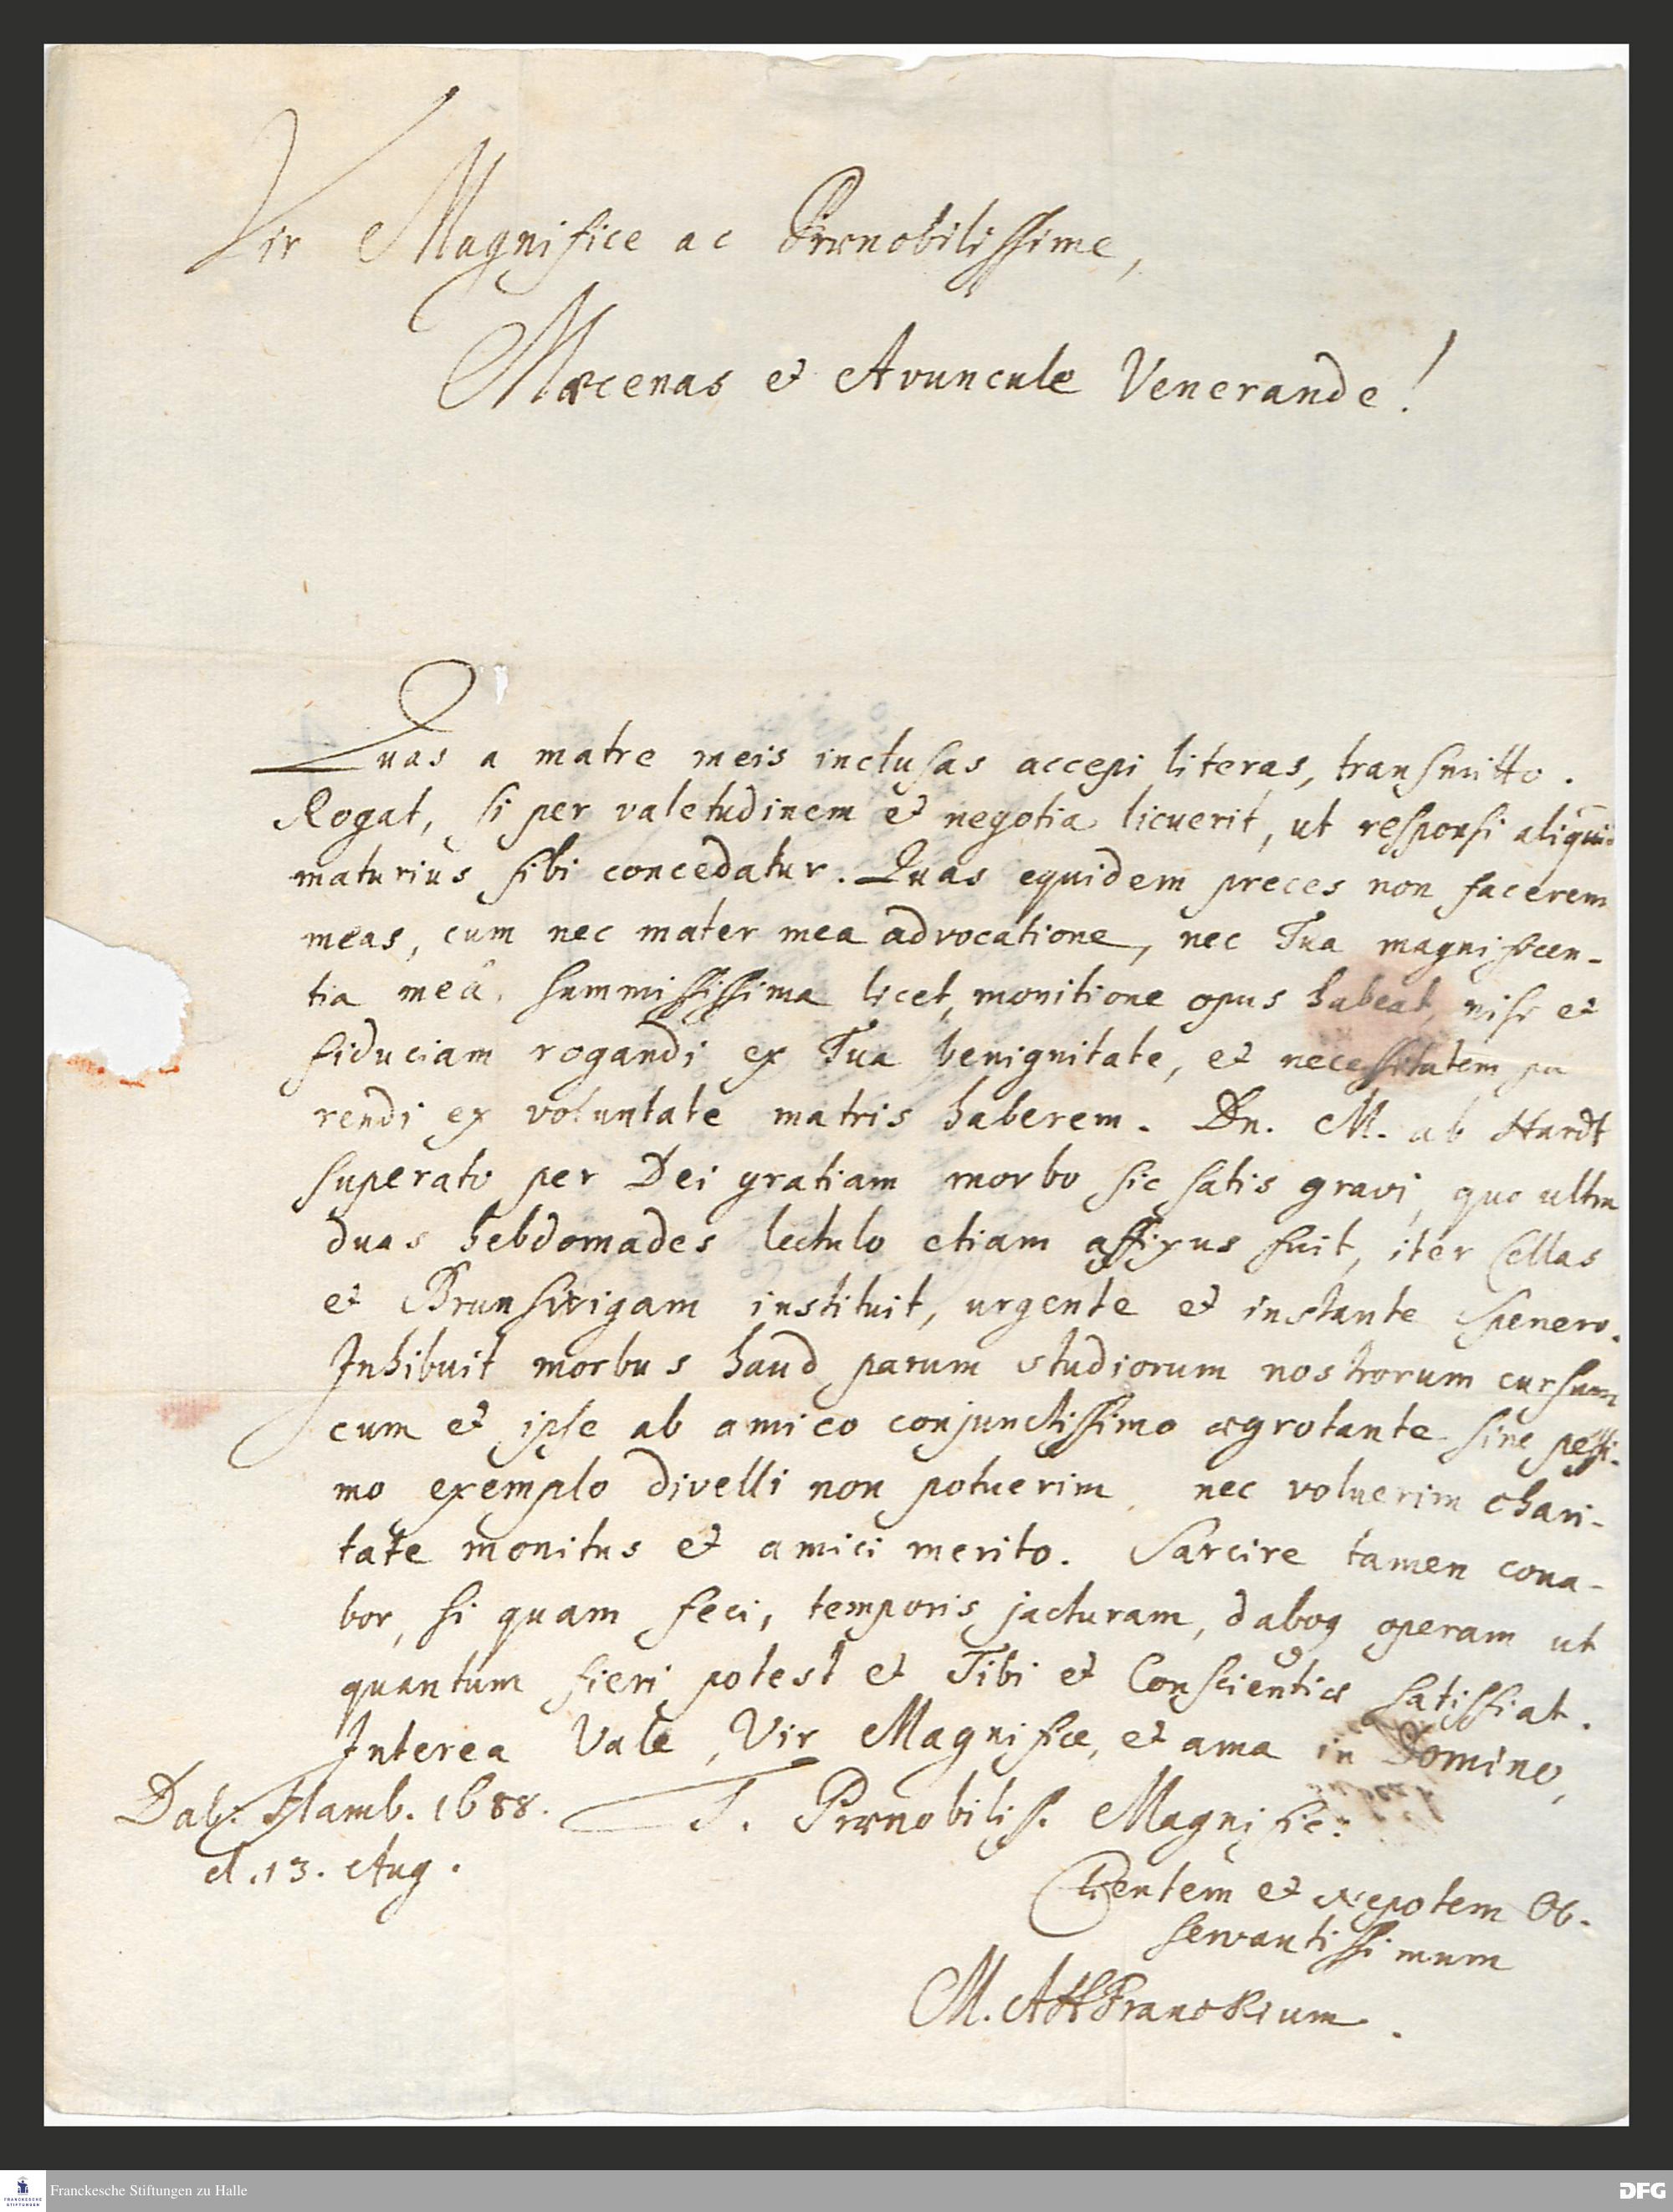 Vir Magnifice ac Prænobilissime,
Mæcenas et Avuncule Venerande!
Quas a matre meis inclusas accepi literas, transmitto.
Rogat, si per valetudinem et negotia licuerit, ut responsi aliquid
maturius sibi concedatur. Quas equidem preces non facerem
meas, cum nec mater mea advocatione, nec Tua magnificen-
tia meâ, summississima licet, monitione opus habeat, nisi et
fiduciam rogandi ex Tua benignitate, et necessitatem pa
rendi ex voluntate matris haberem. Dn. M. ab Hardt
superato per Dei gratiam morbo sic satis gravi, quo ultra
duas hebdomades lectulo etiam affixus fuit, iter Cellas
et Brunswigam instituit, urgente et instante Spenero.
Inhibuit morbus haud parum studiorum nostrorum cursum
cum et ipse ab amico conjunctissimo ægrotante sine pessi-
mo exemplo divelli non potuerim, nec voluerim chari-
tate monitus et amici merito. Sarcire tamen cona-
bor, si quam feci, temporis jacturam, daboq operam ut
quantum fieri potest et Tibi et Conscientiæ satisfiat.
Interea Vale, Vir Magnifice, et ama in Domino,
Dab. Hamb. 1688.
d. 13. Aug.
T. Prænobiliss. Magnific:
Clientem et Nepotem Ob-
servantissimum
M. AHFranckium.
Franckesche Stiftungen zu Halle
FRANCKESCHE
STIFTUNGEN
DFG